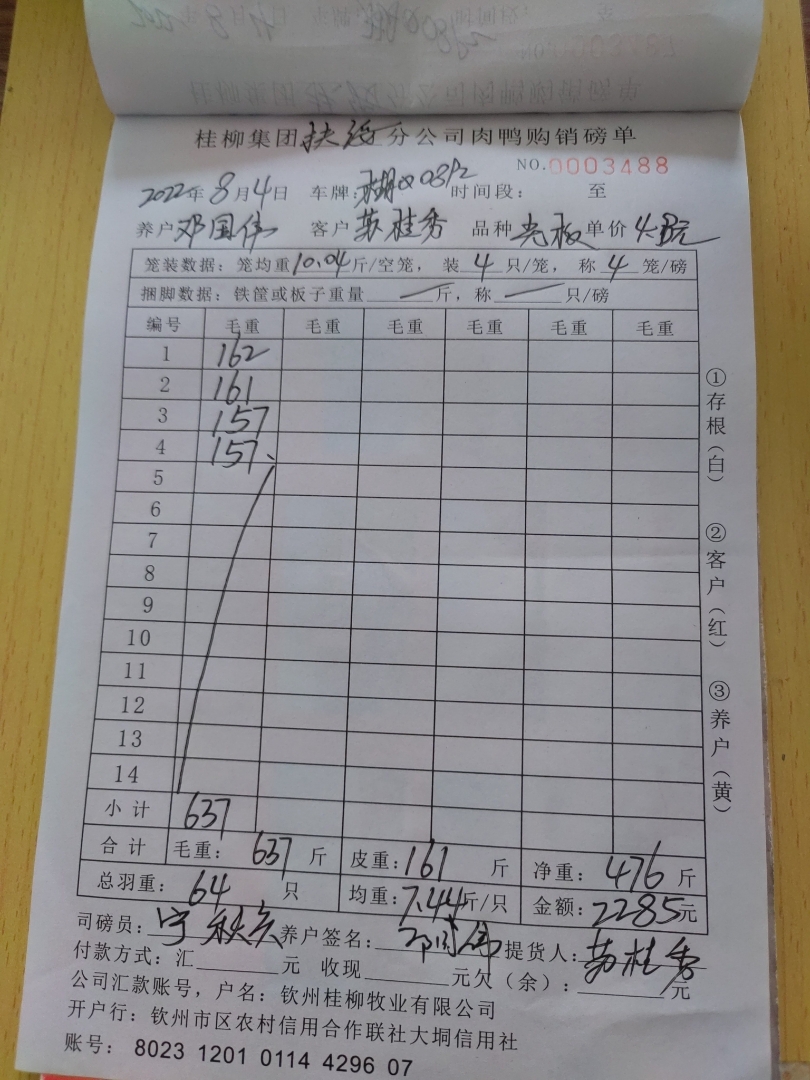 桂柳集团扶绥分公司肉鸭购销磅单
NO.0003488
2022年8月4日 车牌: 时间段: 至
养户邓国伟 客户苏桂秀 品种 单价4.8元
笼装数据: 笼均重10.04斤/空笼, 装4只/笼, 称4笼/磅
捆脚数据: 铁筐或板子重量 斤, 称 只/磅
编号 毛重 毛重 毛重 毛重 毛重 毛重
1 162
2 161
3 157
4 157
5
6
7
8
9
10
11
12
13
14
小计 637
合计 毛重: 637斤 皮重: 161斤 净重: 476斤
总羽重: 64只 均重: 7.44斤/只 金额: 2285元
司磅员: 养户签名: 邓国伟 提货人: 苏桂秀
付款方式: 汇 元 收现 元欠(余): 元
公司汇款账号, 户名: 钦州桂柳牧业有限公司
开户行: 钦州市区农村信用合作联社大垌信用社
账号: 8023 1201 0114 4296 07
①存根(白) ②客户(红) ③养户(黄)